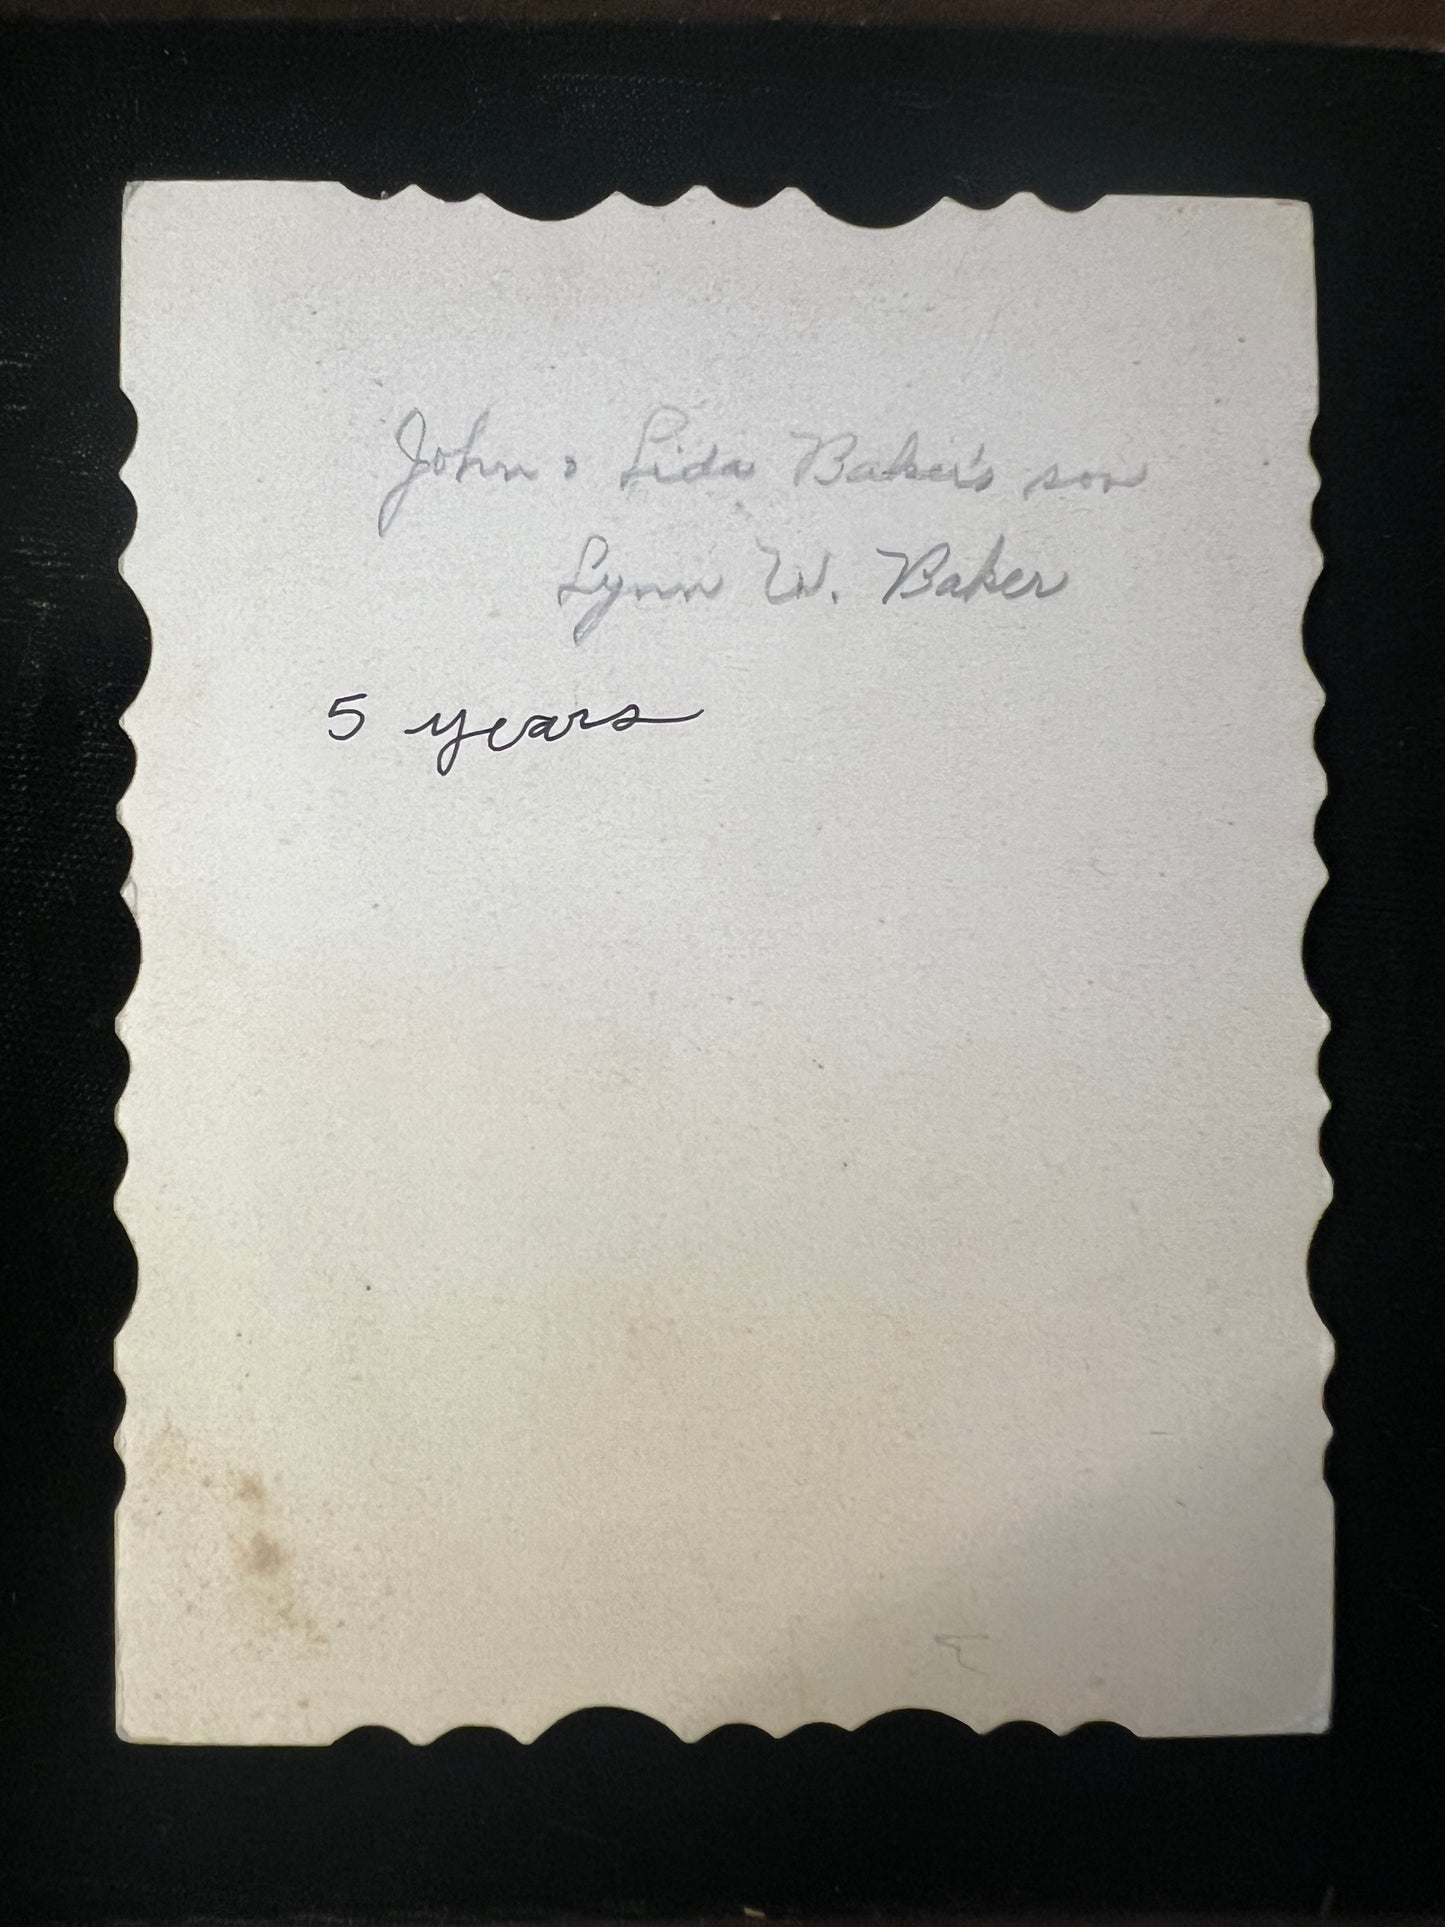 John & Lida Baker's son
Lynn W. Baker
5 years